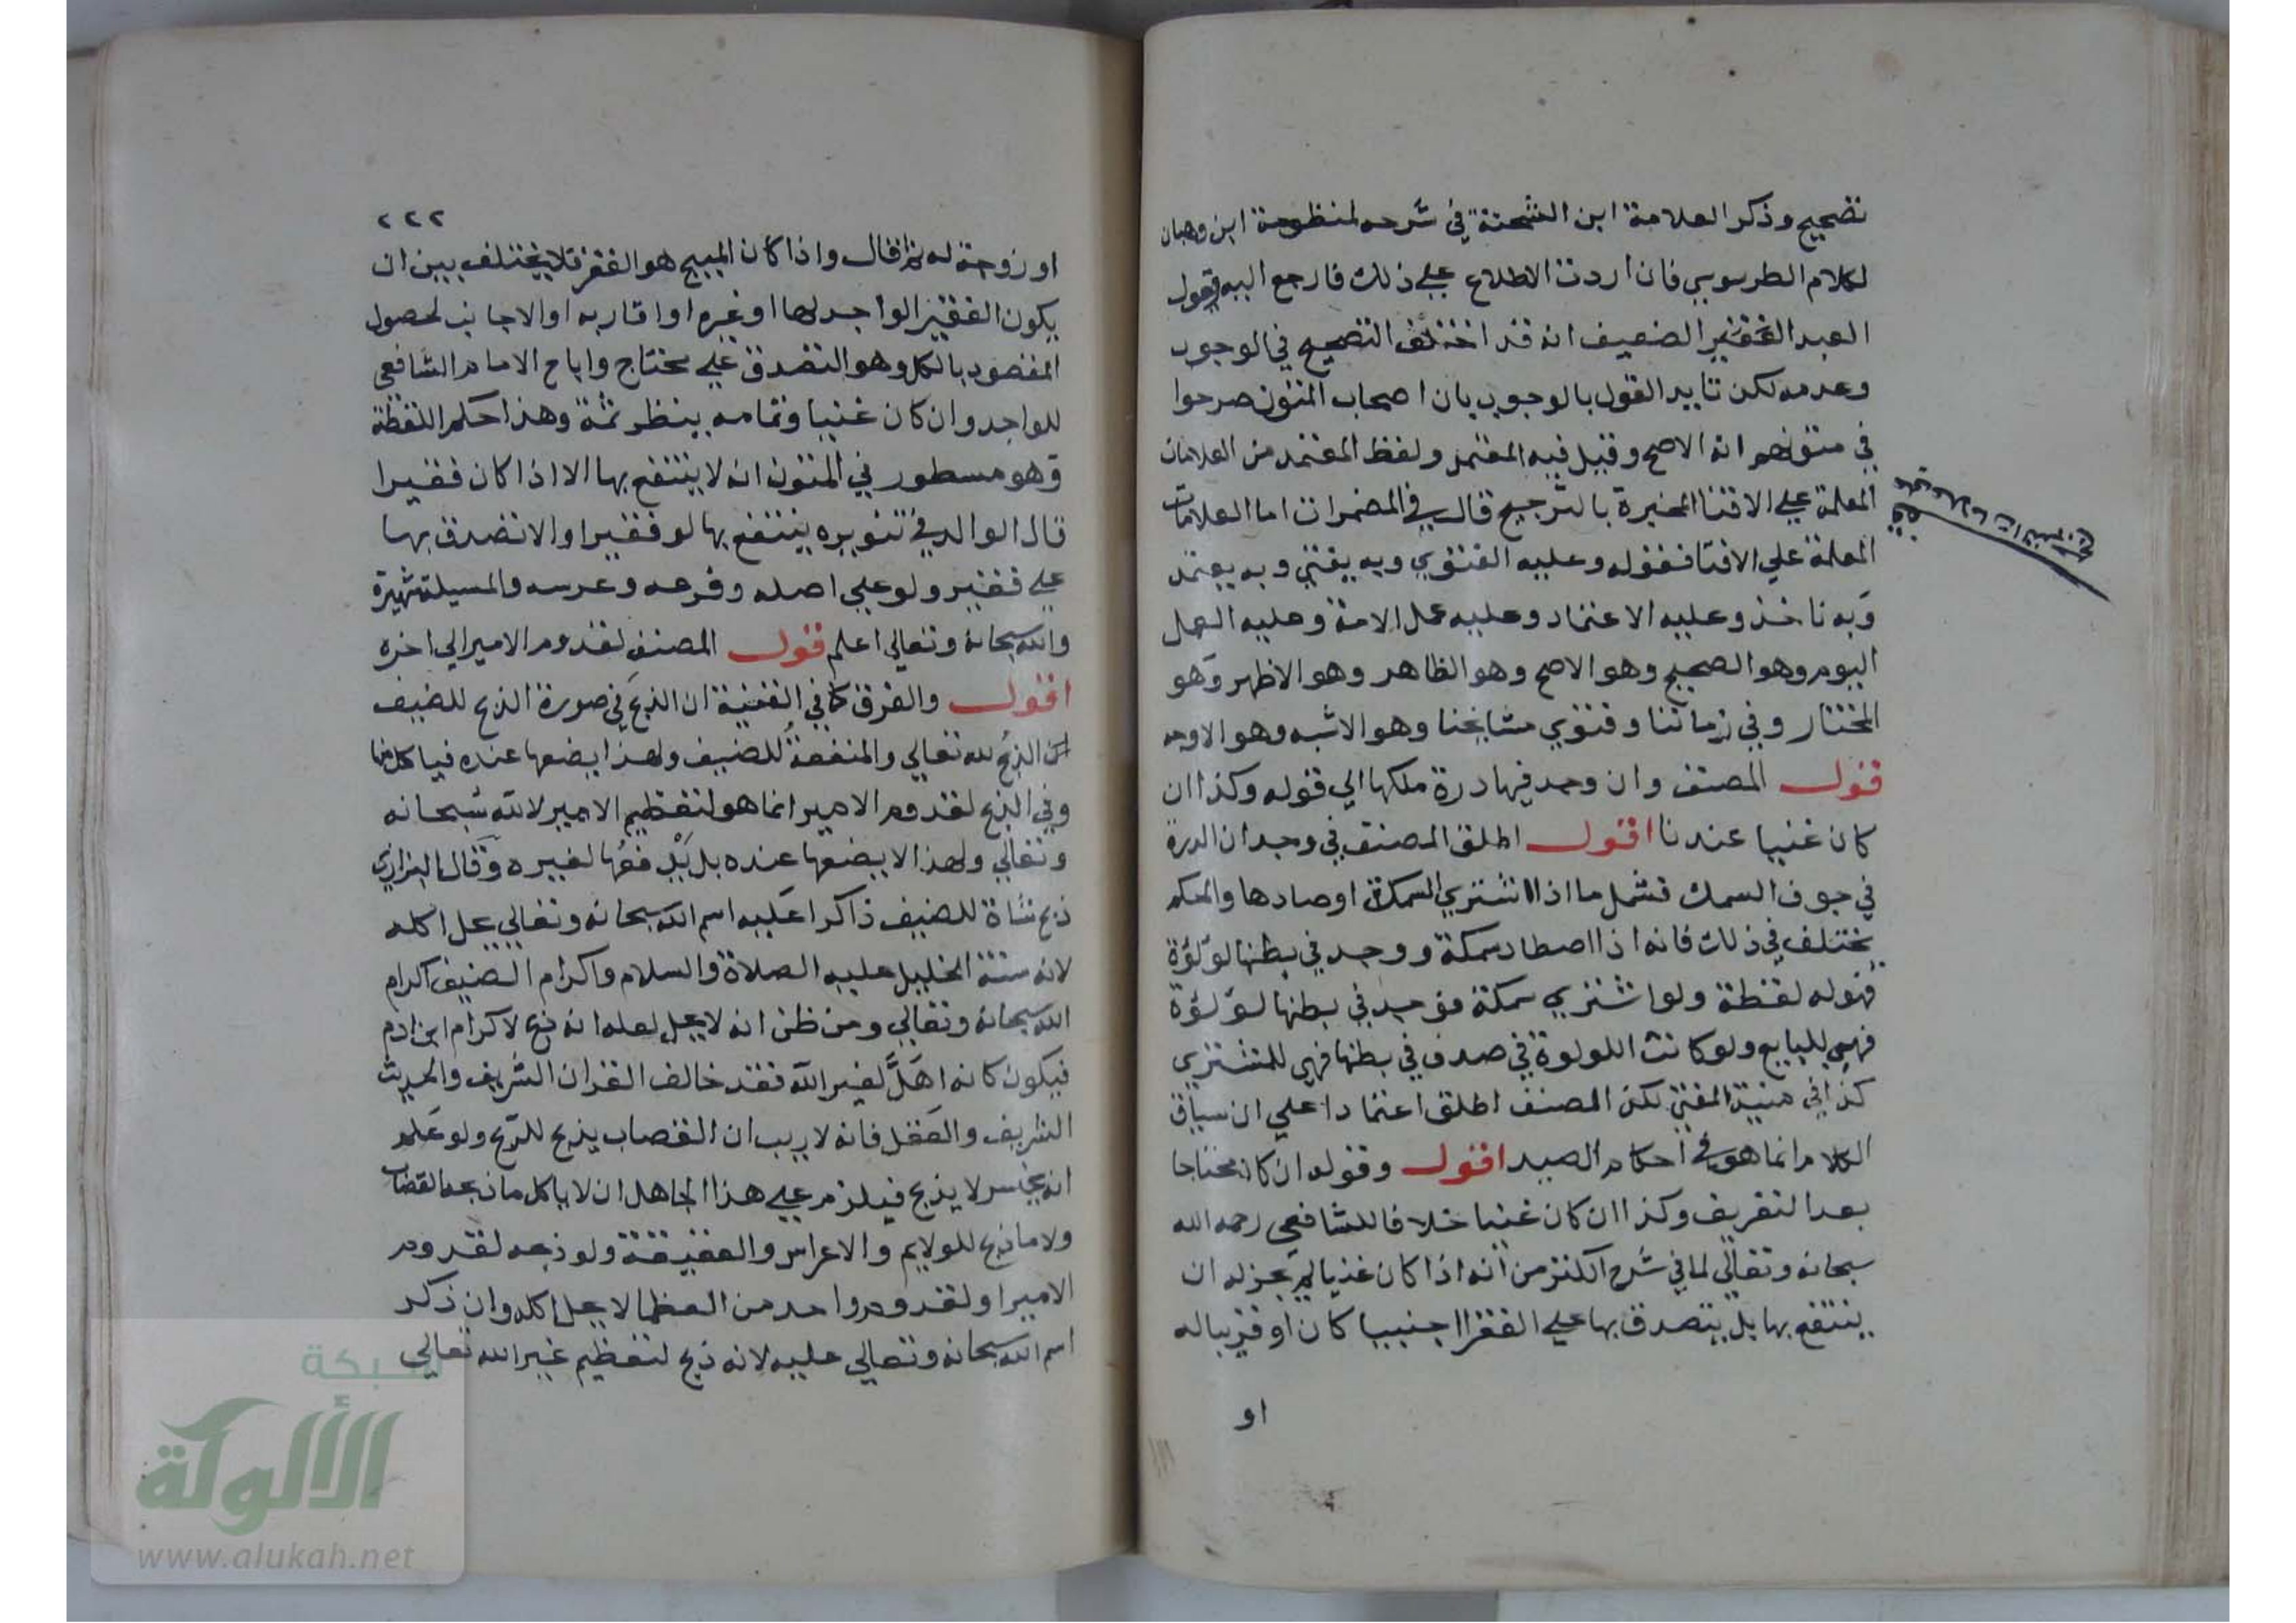 تصحيح وذكر العلامة ابن الشحنة في شرحه لمنظومة ابن وهبان
لكلام الطرسوسي فان اردت الاطلاع علي ذلك فارجع اليه يقول
العبد الفقير الضعيف انه قد اختلف التصحيح في الوجوب
وعدمه لكن تايد القول بالوجوب بان اصحاب المتون صرحوا
في متونهم انه الاصح وقيل فيه المعتمد ولفظ المعتمد من العلامات
المعلمة علي الافتا المخبرة بالترجيح قال في المضمرات اما العلامات
المعلمة علي الافتا فقوله وعليه الفتوي وبه يفتي وبه يعتمد
وبه ناخذ وعليه الاعتماد وعليه عمل الامة وعليه العمل
اليوم وهو الصحيح وهو الاصح وهو الظاهر وهو الاظهر وهو
المختار وفي زماننا وفتوي مشايخنا وهو الاشبه وهو الاوجه
قول المصنف وان وجد فيها درة ملكها الي قوله وكذا ان
كان غنيا عندنا اقول اطلق المصنف في وجدان الدرة
في جوف السمك فشمل ما اذا اشتري السمكة او صادها والحكم
يختلف في ذلك فانه اذا اصطاد سمكة ووجد في بطنها لؤلؤة
فهو له لقطة ولو اشتري سمكة فوجد في بطنها لؤلؤة
فهي للبايع ولو كانت اللولوة في صدف في بطنها فهي للمشتري
كذا في منية المفتي لكن المصنف اطلق اعتمادا علي ان سياق
الكلام انما هو في احكام الصيد اقول وقوله ان كان محتاجا
بعد التعريف وكذا ان كان غنيا خلافا للشافعي رحمه الله
سبحانه وتعالي لما في شرح الكنز من انه اذا كان غنيا لم يجز له ان
ينتفع بها بل يتصدق بها علي الفقرا اجنبيا كان او قريبا له
او
٢٢٢
او زوجة له ثم قال واذا كان المبيح هو الفقر فلا يختلف بين ان
يكون الفقير الواجد لها او غيره او اقاربه او الاجانب لحصول
المقصود بالكل وهو التصدق علي محتاج واباح الامام الشافعي
للواجد وان كان غنيا وتمامه ينظر ثمة وهذا حكم اللقطة
وهو مسطور في المتون انه لا ينتفع بها الا اذا كان فقيرا
قال الوالد في تنويره ينتفع بها لو فقيرا والا تصدق بها
علي فقير ولو علي اصله وفرعه وعرسه والمسيلة شهيرة
والله سبحانه وتعالي اعلم قول المصنف لقدوم الامير الي اخره
اقول والفرق كما في القنية ان الذبح في صورة الذبح للضيف
لان الذبح لله تعالي والمنفعة للضيف ولهذا يضعها عنده فياكل منها
وفي الذبح لقدوم الامير انما هو لتعظيم الامير لا لله سبحانه
وتعالي ولهذا لا يضعها عنده بل يدفعها لغيره وقال البزازي
ذبح شاة للضيف ذاكرا عليه اسم الله سبحانه وتعالي يحل اكله
لانه سنة الخليل عليه الصلاة والسلام واكرام الضيف اكرام
الله سبحانه وتعالي ومن ظن انه لا يحل لعله انه ذبح لاكرام ابن ادم
فيكون كانه اهل لغير الله فقد خالف القران الشريف والحديث
الشريف والعقل فانه لا ريب ان القصاب يذبح للربح ولو علم
انه يخسر لا يذبح فيلزم علي هذا الجاهل ان لا ياكل ما ذبحه القصاب
ولا ما ذبح للولايم والاعراس والعقيقة ولو ذبحه لقدوم
الامير او لقدوم واحد من العظما لا يحل اكله وان ذكر
اسم الله سبحانه وتعالي عليه لانه ذبح لتعظيم غير الله تعالي
شبكة
الألوكة
www.alukah.net